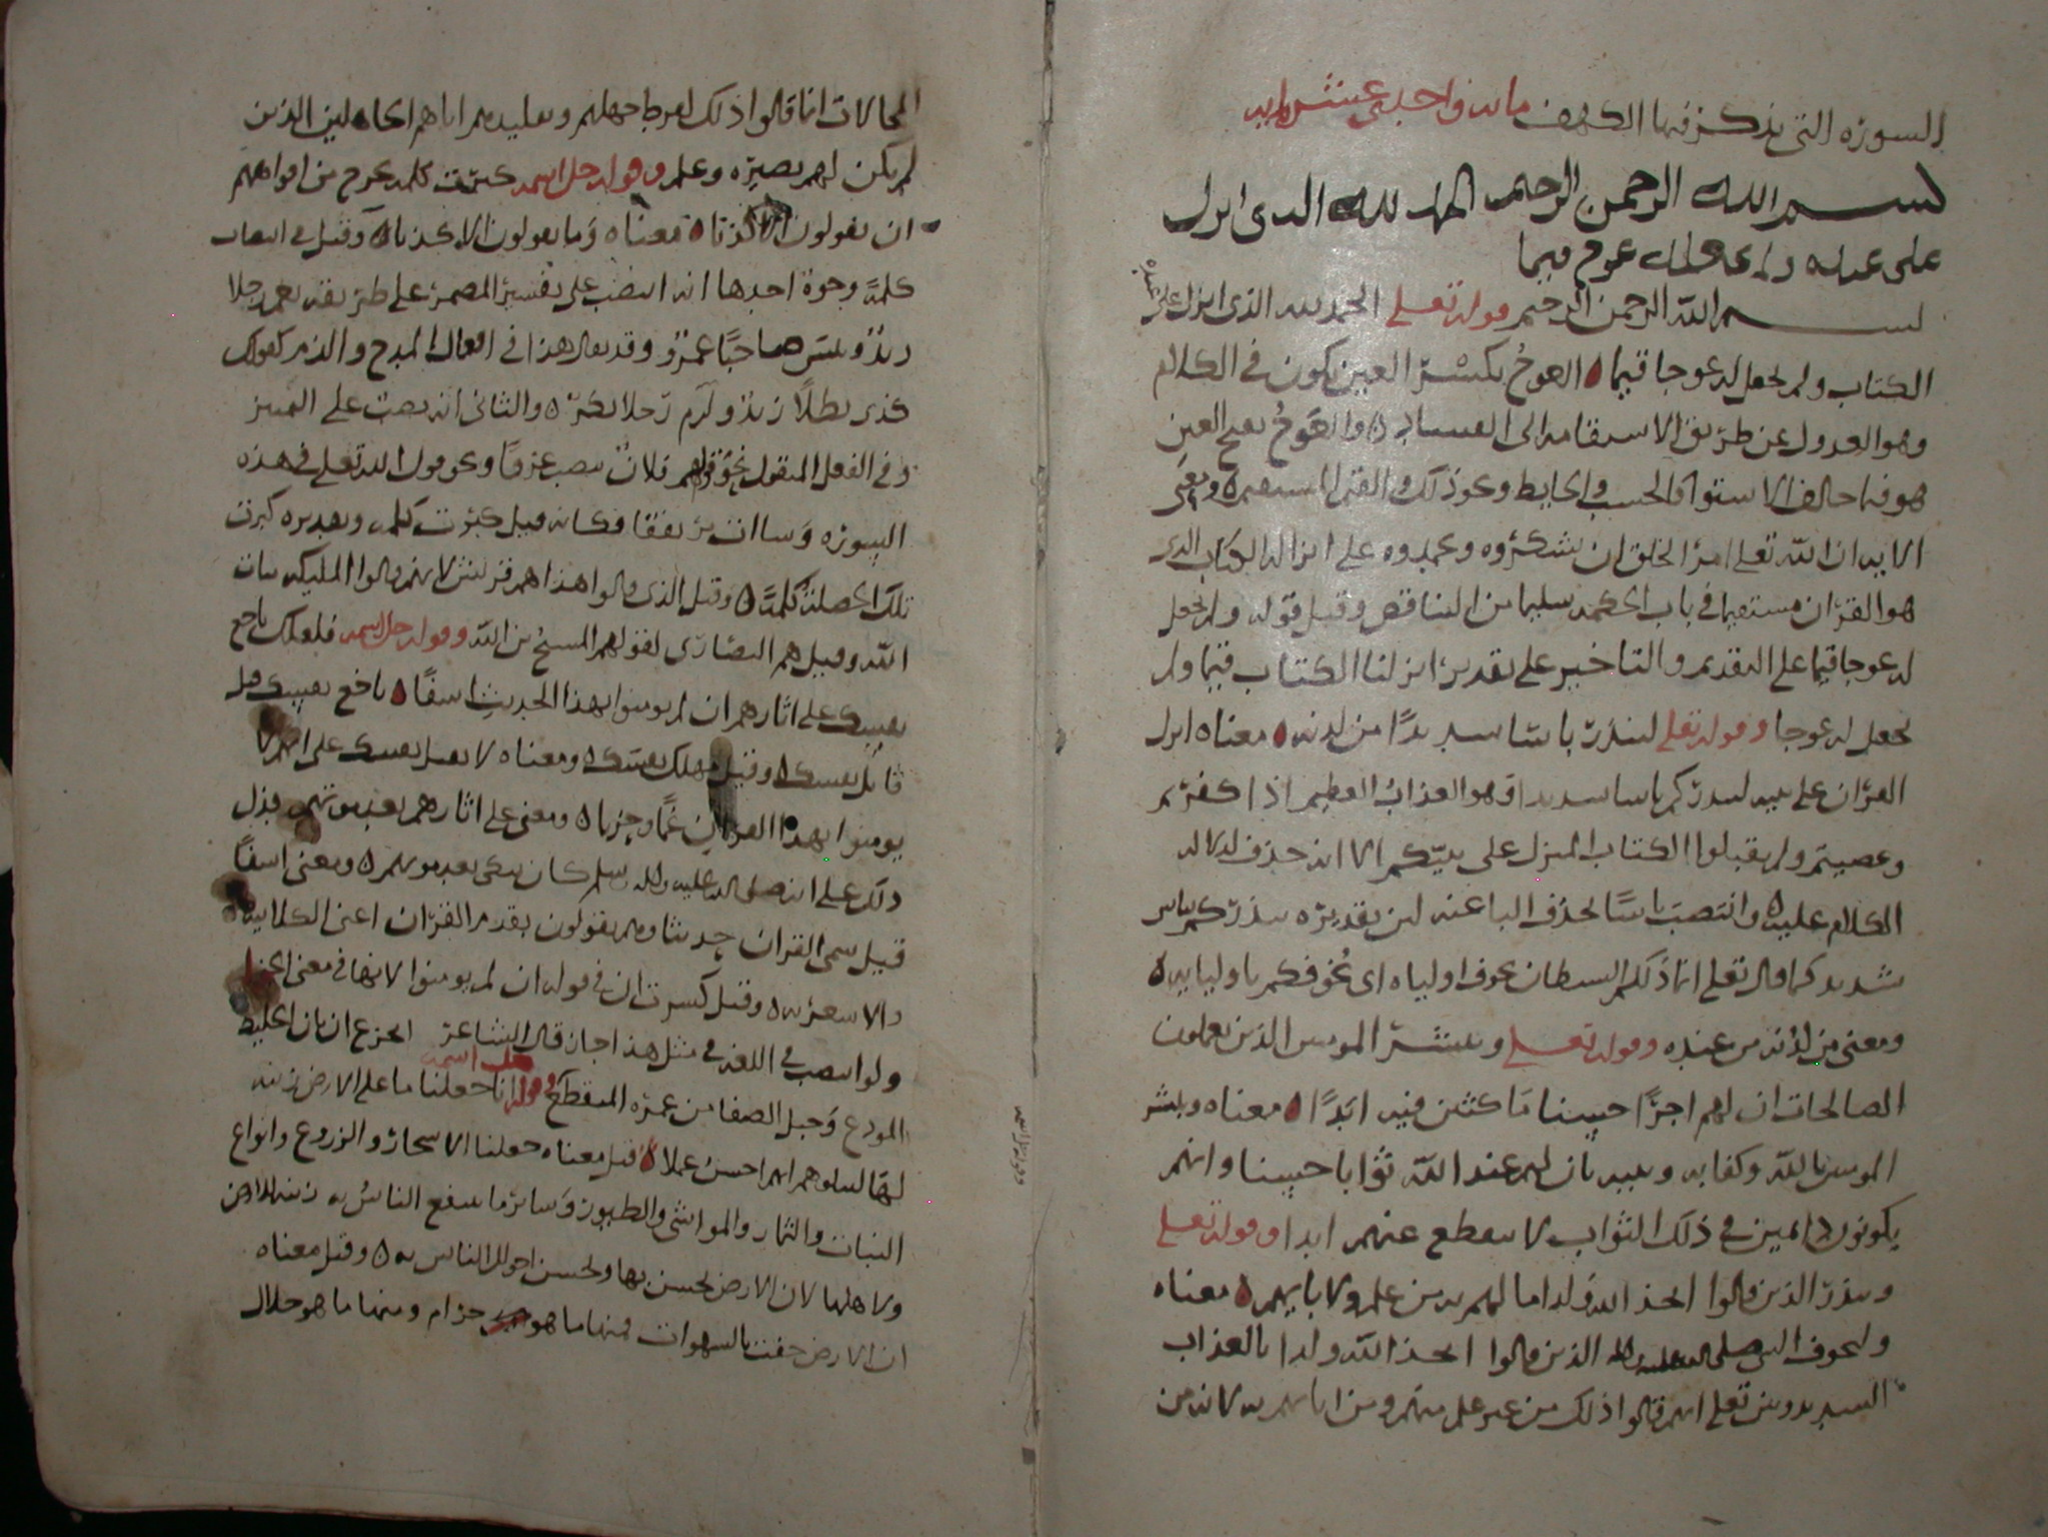 السورة التي يذكر فيها الكهف مائة واحدى عشر اية
بسم الله الرحمن الرحيم الحمد لله الذي انزل
على عبده عوج قيما
بسم الله الرحمن الرحيم قوله تعلى الحمد لله الذي انزل على عبده
الكتاب ولم يجعل له عوجا قيما ه العوج بكسر العين يكون في الكلام
وهو العدول عن طريق الاستقامة الى الفساد ه والعوج بفتح العين
هو فيما خالف الاستوا كالخشب والحايط ونحو ذلك والقيم المستقيم ه ومعنى
الاية ان الله تعلى امر الخلق ان يشكروه ويحمدوه على انزاله الكتاب الذي
هو القران مستقيما في باب الحكمة سليما من التناقص وقيل قوله ولم يجعل
له عوجا قيما على التقديم والتاخير على تقدير انزلنا الكتاب قيما ولم
يجعل له عوجا وقوله تعلى لينذر باسا شديدا من لدنه ه معناه انزل
القران على نبيه لينذركم باسا شديدا وهو العذاب العظيم اذا كفرتم
وعصيتم ولم تقبلوا الكتاب المنزل على نبيكم الا انه حذف لدلالة
الكلام عليه ه وانتصب باسا لحذف البا عنه لين تقديره ينذركم بباس
شديد كما قال تعلى انما ذلكم الشيطان يخوف اولياه اي يخوفكم باوليايه ه
ومعنى من لدنه من عنده وقوله تعلى ويبشر المومنين الذين يعملون
الصالحات ان لهم اجرا حسنا ماكثين فيه ابدا ه معناه ويبشر
المومنين بالله وكتابه ونبيه بان لهم عند الله ثوابا حسنا وانهم
يكونون دايمين في ذلك الثواب لا ينقطع عنهم ابدا وقوله تعلى
وينذر الذين قالوا اتخذ الله ولدا ما لهم به من علم ولا لابايهم ه معناه
وليخوف النبي صلى الله عليه واله الذين قالوا اتخذ الله ولدا بالعذاب
الشديد وبين تعلى انهم قالوا ذلك من غير علم منهم ومن ابايهم به لانه من
المحالات انما قالوا ذلك لفرط جهلهم وتقليدهم اباهم الجاهلين الذين
لم يكن لهم بصيرة وعلم وقوله جل اسمه كبرت كلمة تخرج من افواههم
ان يقولون الا كذبا ه معناه وما يقولون الا كذبا ه وقيل في انتصاب
كلمة وجوه احدها انه انتصب على تفسير المضمر على طريقة نعم رجلا
زيد وبئس صاحبا عمرو وقد يقال هذا في افعال المدح والذم كقولك
بطلا زيد وكرم رجلا بكر ه والثاني انه نصب على التميز
وفي الفعل المنقول نحو قولهم فلان تصبب عرقا ونحو قول الله تعلى في هذه
السورة وساات مرتفقا فكانه قيل كبرت كلمة وتقديره كبرت
تلك الخصلة كلمة ه وقيل الذي قالوا هذا هم قريش لانهم قالوا المليكة بنات
الله وقيل هم النصارى لقولهم المسيح بن الله وقوله جل اسمه فلعلك باخع
نفسك على اثارهم ان لم يومنوا بهذا الحديث اسفا ه باخع نفسك قيل
قاتل نفسك ه وقيل مهلك نفسك ه ومعناه لا تقتل نفسك على انهم لا
يومنوا بهذا القران غما وحزنا ه ومعنى على اثارهم بعد موتهم فدل
ذلك على انه صلى الله عليه واله وسلم كان يبكي بعد موتهم ه ومعنى اسفا
قيل سمى القران حديثا وهم يقولون بقدم القران اعنى الكلابية
والاشعرية ه وقيل كسرت ان في قوله ان لم يومنوا لانها في معنى الجزا
ولو انتصب في اللغة في مثل هذا جاز قال الشاعر اتجزع ان بان الخليط
المودع وحبل الصفا من عزة المتقطع وقوله جل اسمه انا جعلنا ما على الارض زينة
لها لنبلوهم ايهم احسن عملا ه قيل معناه جعلنا الاشجار والزروع وانواع
النبات والثمار والمواشي والطيور وساير ما ينتفع الناس به زينة للارض
ولاهلها لان الارض تحسن بها وتحسن احوال الناس به ه وقيل معناه
ان الارض حفت بالشهوات فمنها ما هو حرام ومنها ما هو حلال